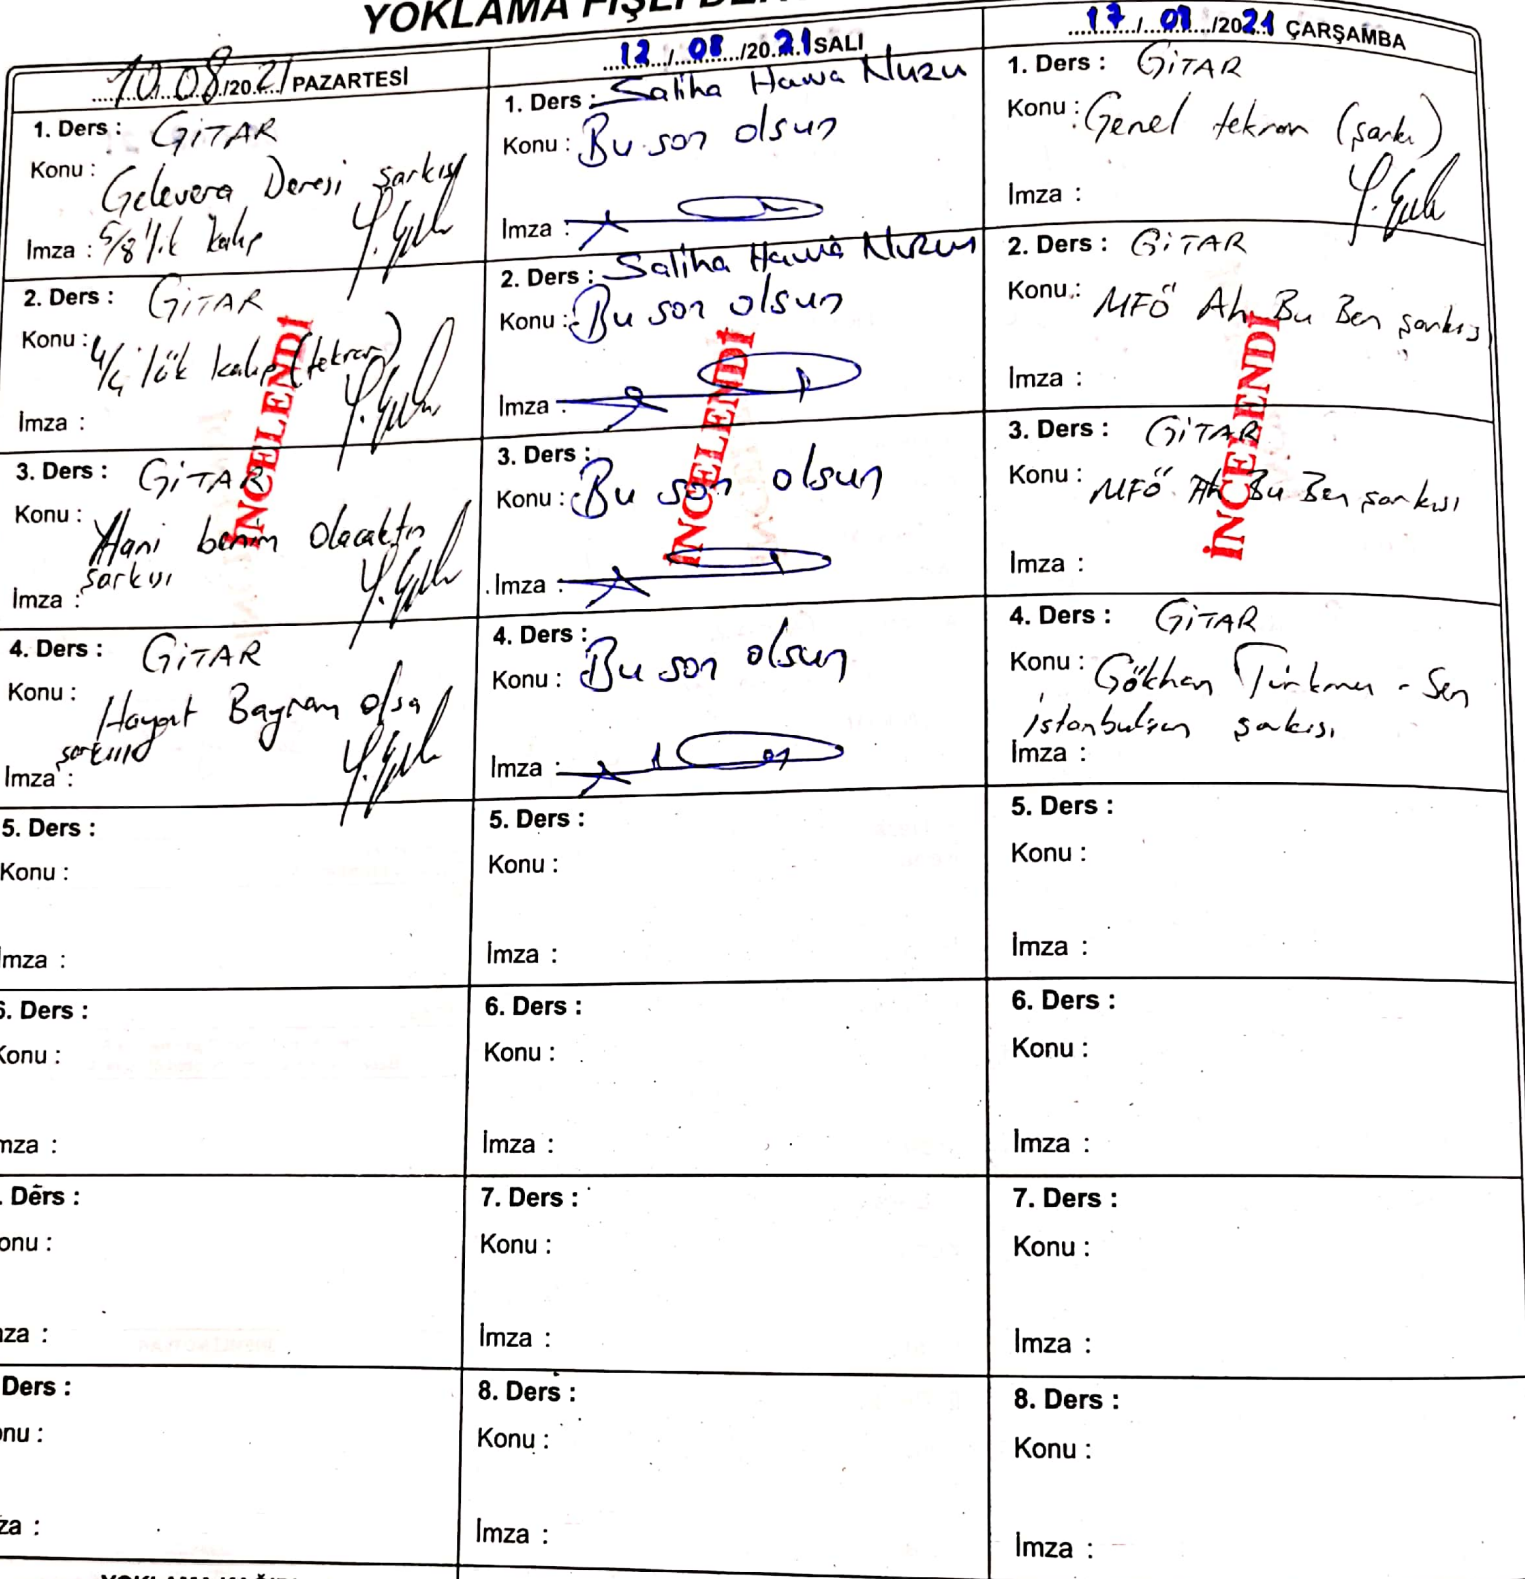 YOKLAMA FİŞLİ DER
10.08/2021 PAZARTESİ
1. Ders : GİTAR
Konu : Gelevera Deresi şarkısı
5/8'lik kalıp
İmza :
2. Ders : GİTAR
Konu : 4/4 'lük kalıp (tekrar)
İmza :
3. Ders : GİTAR
Konu : Hani benim Olacaktın
şarkısı
İmza :
4. Ders : GİTAR
Konu : Hayat Bayram olsa
şarkısı
İmza :
5. Ders :
Konu :
İmza :
6. Ders :
Konu :
mza :
. Ders :
onu :
za :
Ders :
onu :
za :
İNCELENDİ
12/08/2021 SALI
1. Ders : Saliha Hawa Nuzu
Konu : Bu son olsun
İmza :
2. Ders : Saliha Hawa Nuzu
Konu : Bu son olsun
İmza :
3. Ders :
Konu : Bu son olsun
İmza :
4. Ders :
Konu : Bu son olsun
İmza :
5. Ders :
Konu :
İmza :
6. Ders :
Konu :
İmza :
7. Ders :
Konu :
İmza :
8. Ders :
Konu :
İmza :
İNCELENDİ
17/08/2021 ÇARŞAMBA
1. Ders : GİTAR
Konu : Genel tekrar (şarkı)
İmza :
2. Ders : GİTAR
Konu : MFÖ Ah Bu Ben şarkısı
İmza :
3. Ders : GİTAR
Konu : MFÖ Ah Bu Ben şarkısı
İmza :
4. Ders : GİTAR
Konu : Gökhan Türkmen - Sen
İstanbulsun şarkısı
İmza :
5. Ders :
Konu :
İmza :
6. Ders :
Konu :
İmza :
7. Ders :
Konu :
İmza :
8. Ders :
Konu :
İmza :
İNCELENDİ